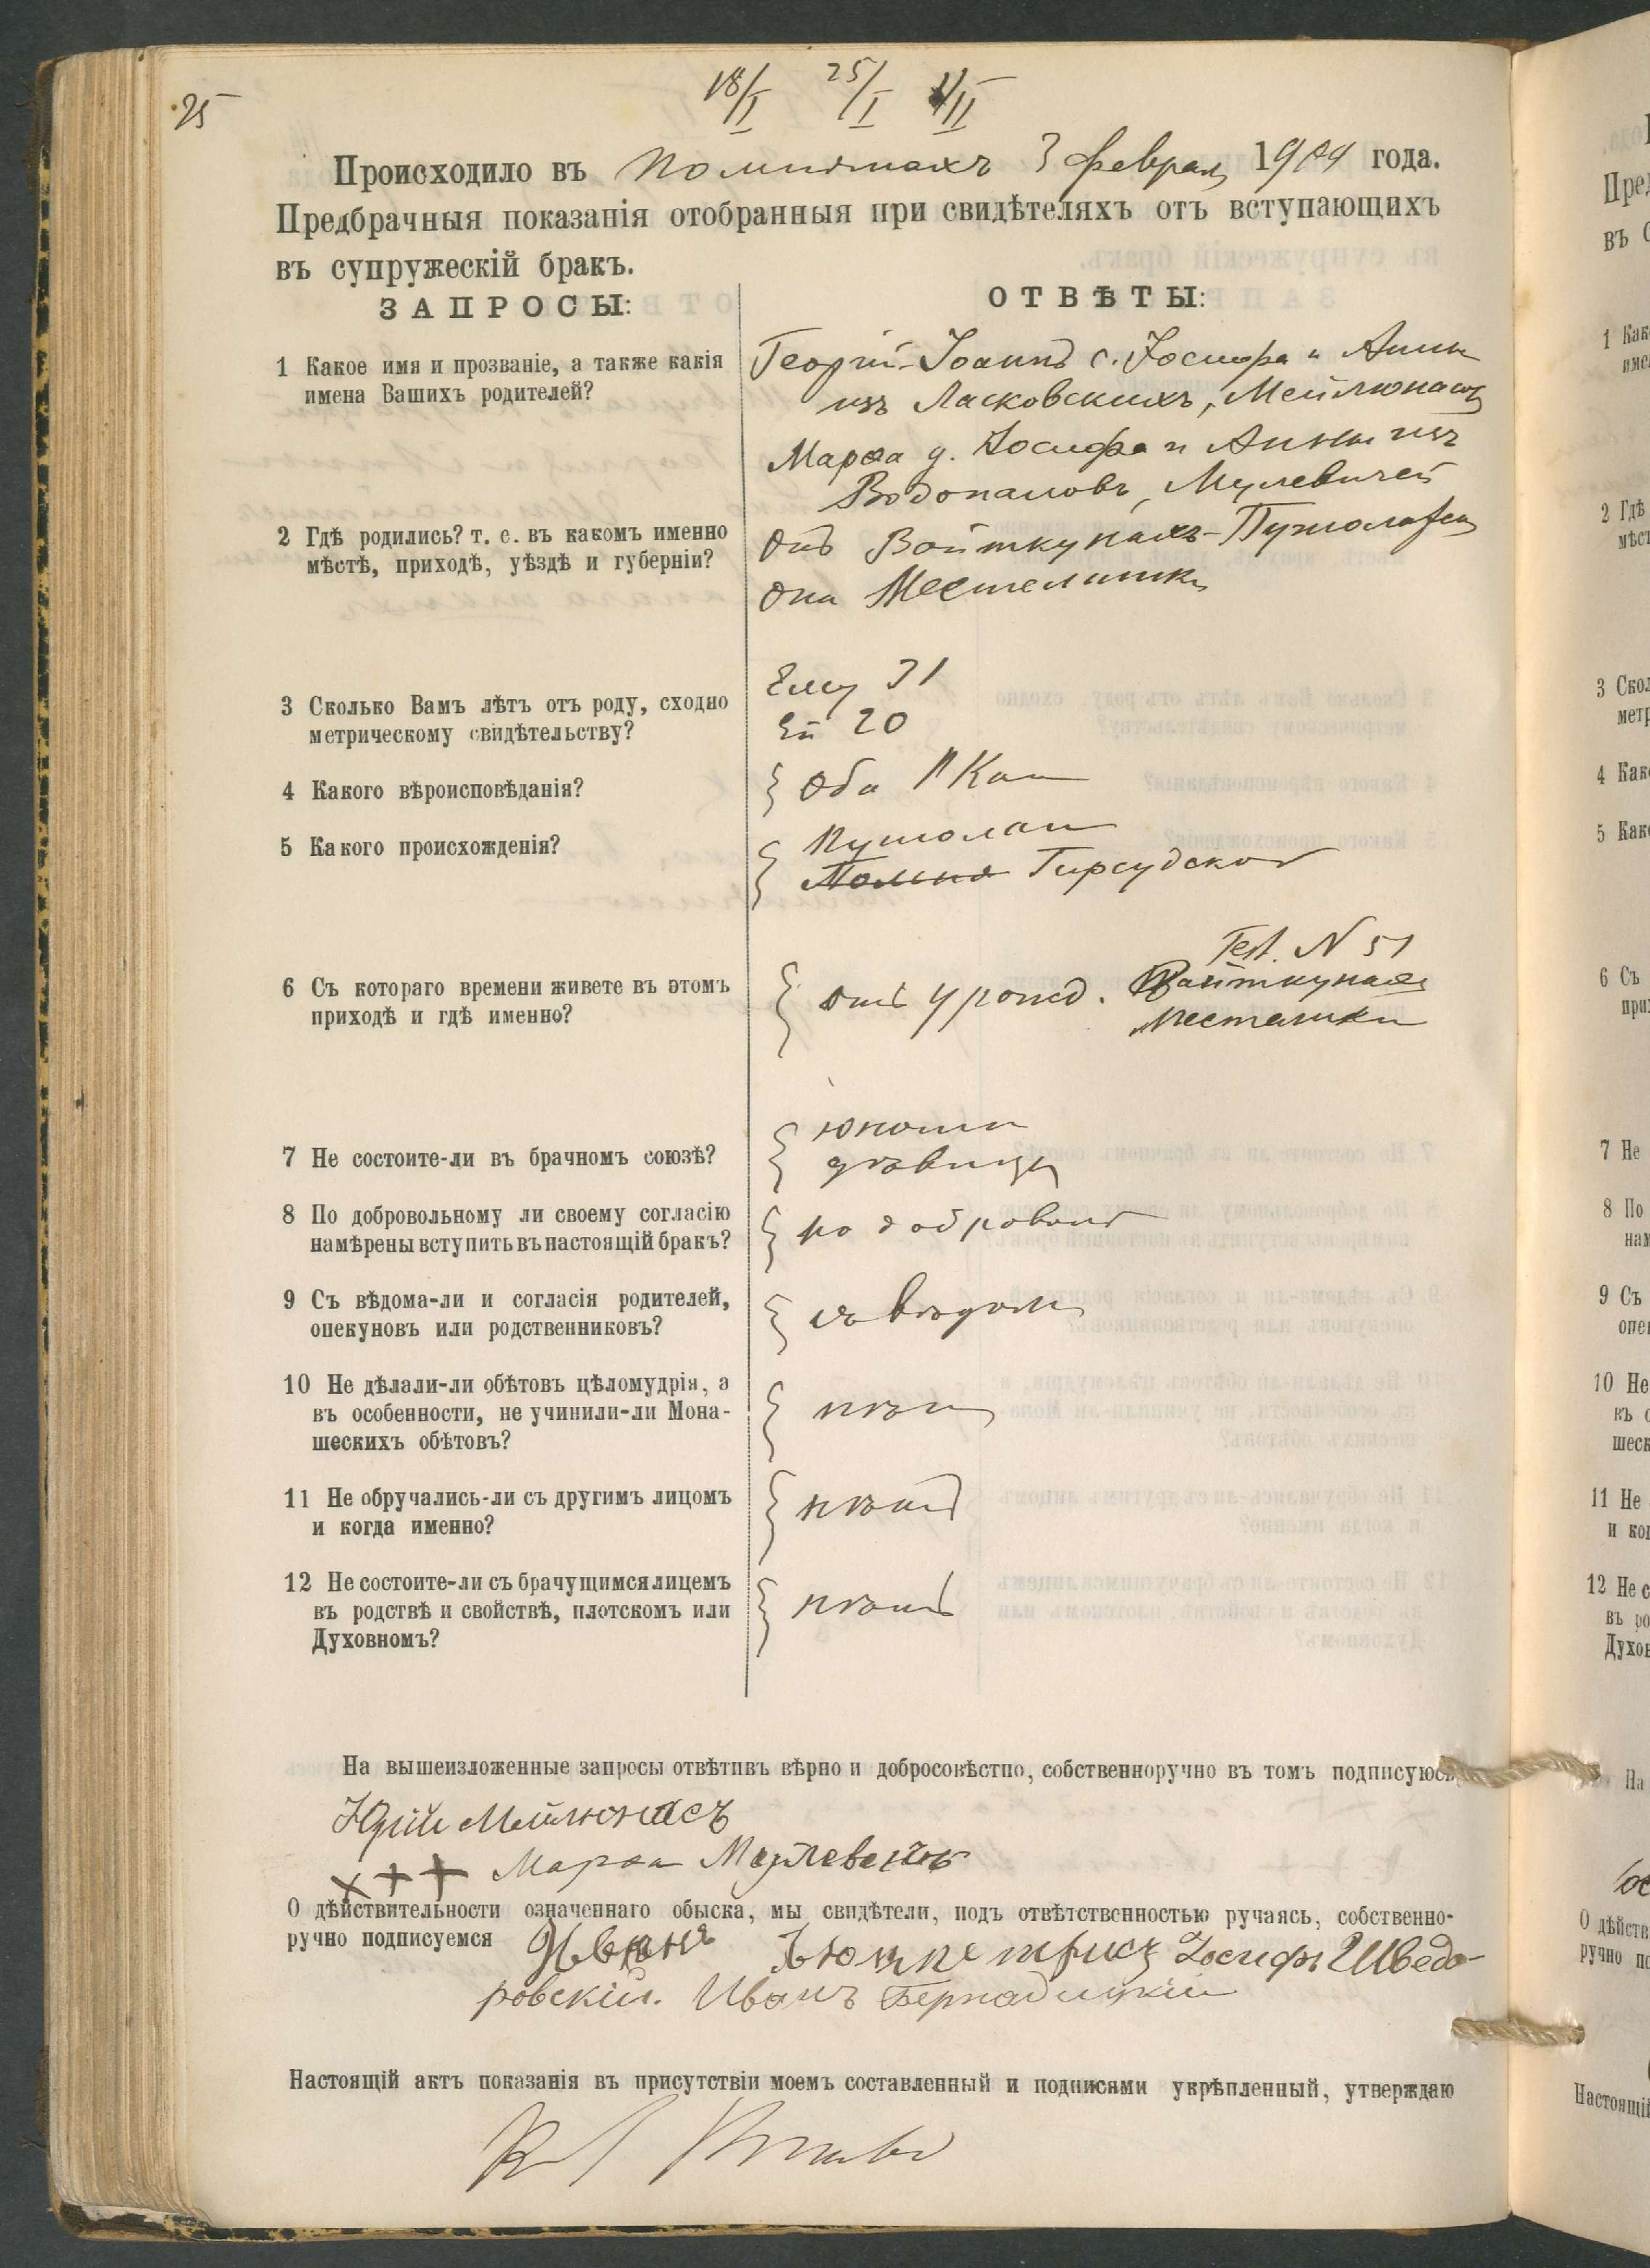 25
18/I 25/I 1/II
Происходило въ Помпянахъ 3 феврал 1904 года.
Предбрачныя показанія отобранныя при свидѣтеляхъ отъ вступающихъ
въ супружескій бракъ.
ЗАПРОСЫ:
ОТВѢТЫ:
1 Какое имя и прозваніе, а также какія
имена Вашихъ родителей?
Георгій-Іоаннъ с. Іосифа и Анны
изъ Ласковскихъ, Мейлюнасъ
Марѳа д. Іосифа и Анны изъ
Водопаловъ, Мулевичей
2 Гдѣ родились? т. е. въ какомъ именно
мѣстѣ, приходѣ, уѣздѣ и губерніи?
Онъ Войткунахъ-Пушолатск
Она Местелишки
3 Сколько Вамъ лѣтъ отъ роду, сходно
метрическому свидѣтельству?
Ему 31
Ей 20
4 Какого вѣроисповѣданія?
Оба Р Кат
5 Какого происхожденія?
Пушолат
Гирсудской
6 Съ котораго времени живете въ этомъ
приходѣ и гдѣ именно?
Test. N 51
отъ урожд. Войткунахъ
Местелишки
7 Не состоите-ли въ брачномъ союзѣ?
юноши
дѣвица
8 По добровольному ли своему согласію
намѣрены вступить въ настоящій бракъ?
по добровол
9 Съ вѣдома-ли и согласія родителей,
опекуновъ или родственниковъ?
съ вѣдома
10 Не дѣлали-ли обѣтовъ цѣломудрія, а
въ особенности, не учинили-ли Мона-
шескихъ обѣтовъ?
нѣтъ
11 Не обручались-ли съ другимъ лицомъ
и когда именно?
нѣтъ
12 Не состоите-ли съ брачущимся лицемъ
въ родствѣ и свойствѣ, плотскомъ или
Духовномъ?
нѣтъ
На вышеизложенные запросы отвѣтивъ вѣрно и добросовѣстно, собственноручно въ томъ подписуюсь
Юрій Мейлюнасъ
×++ Марѳа Мулевичъ
О дѣйствительности означеннаго обыска, мы свидѣтели, подъ отвѣтственностью ручаясь, собственно-
ручно подписуемся Иванъ Іосифъ Шведо-
ровскій. Иванъ Бернадицкій
Настоящій актъ показанія въ присутствіи моемъ составленный и подписями укрѣпленный, утверждаю